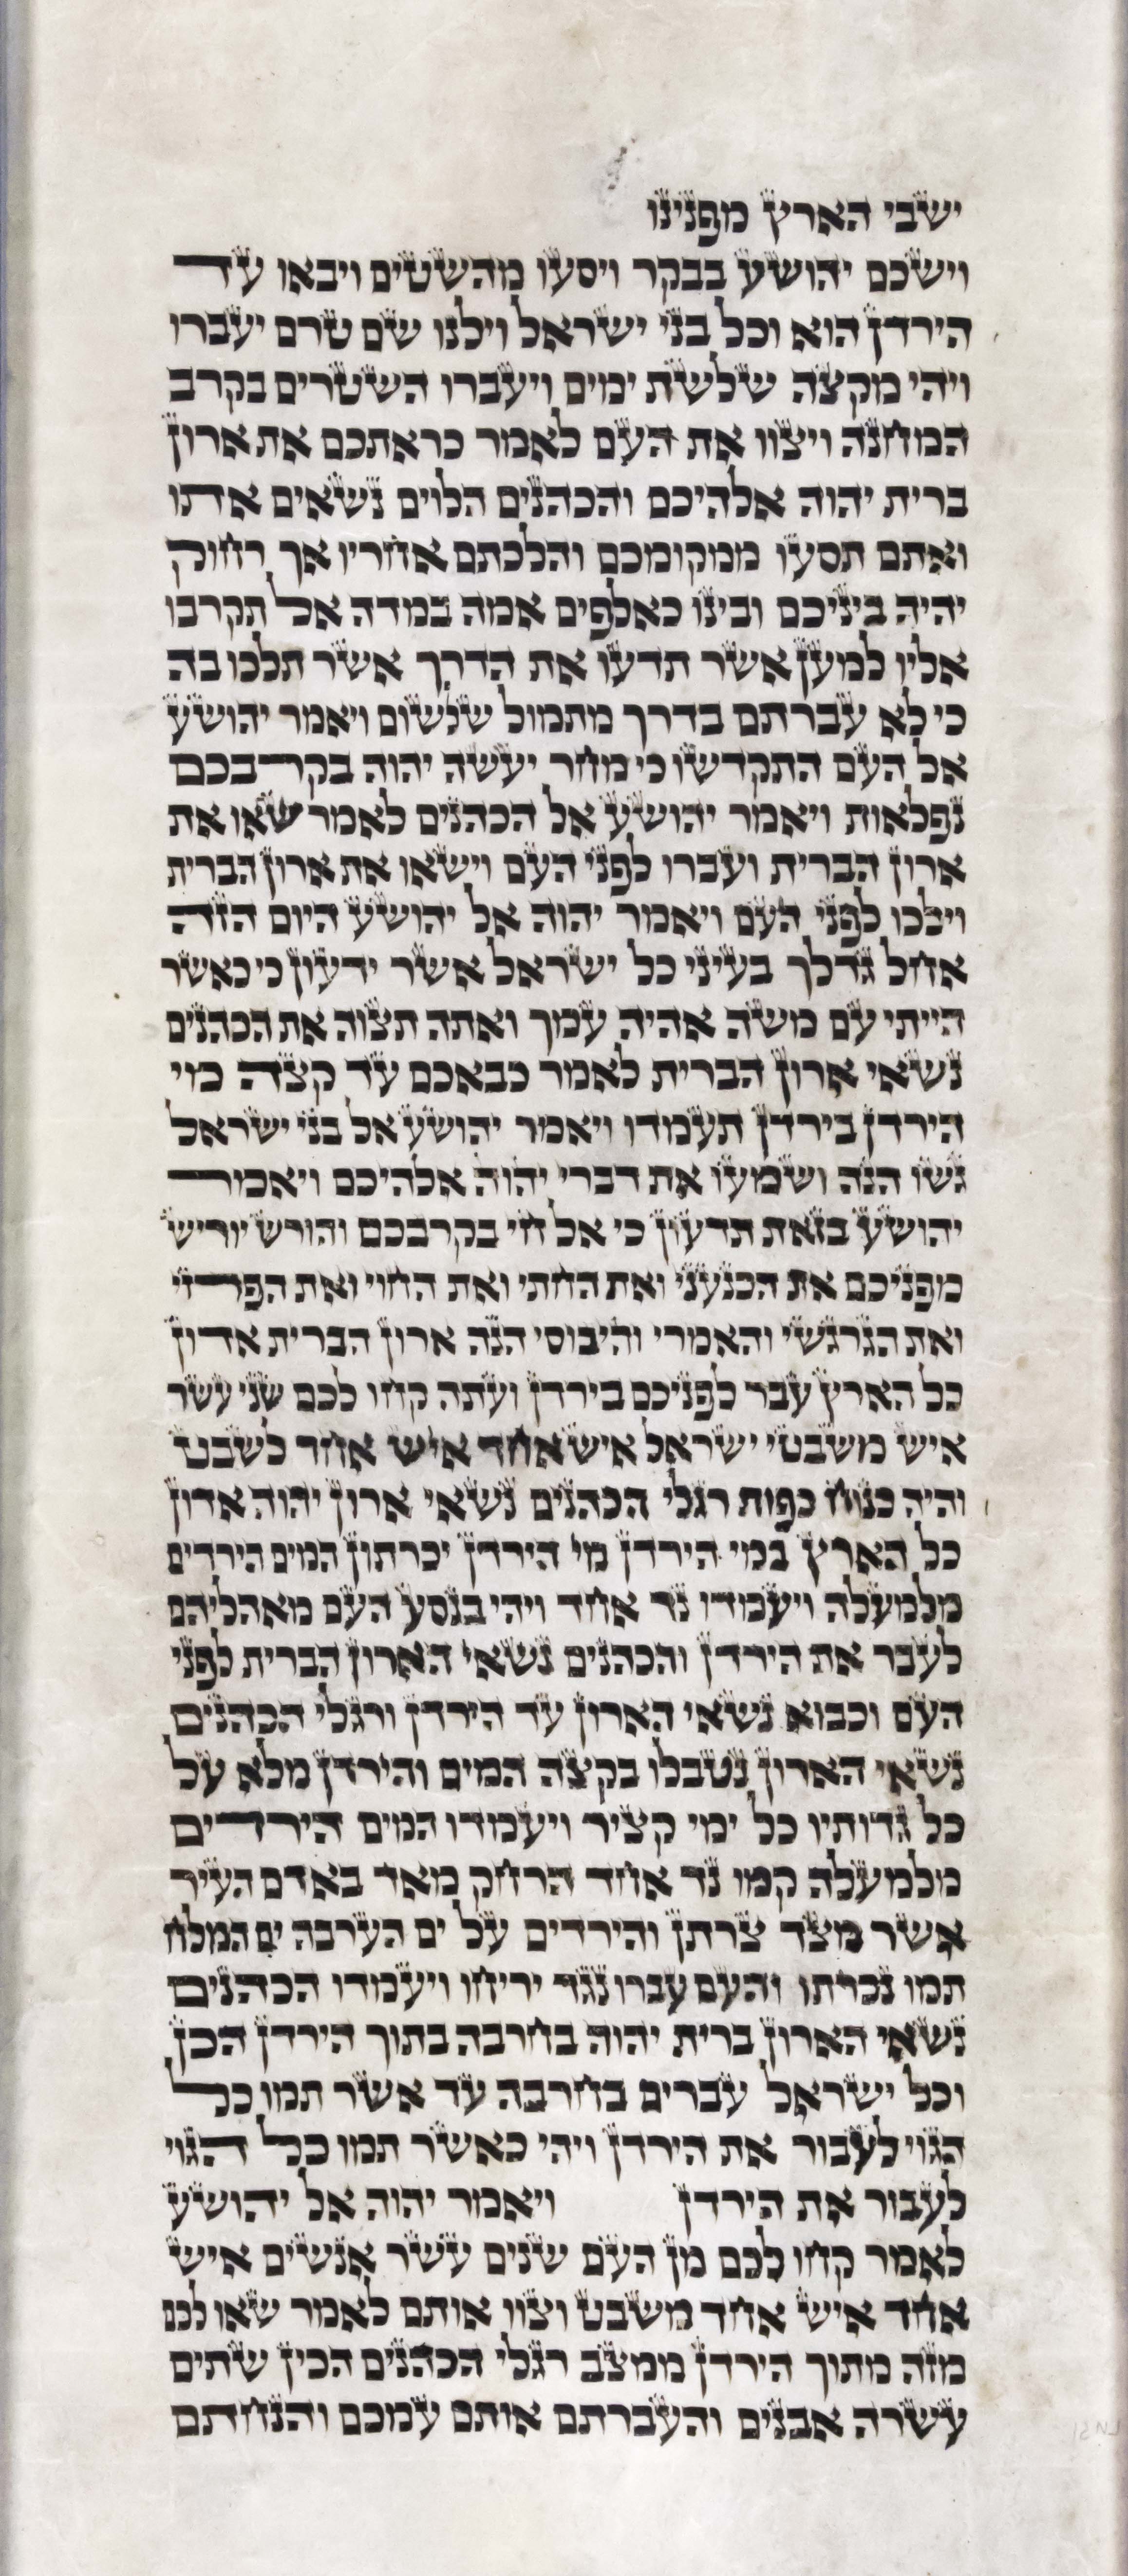 ישבי הארץ מפנינו
וישכם יהושע בבקר ויסעו מהשטים ויבאו עד
הירדן הוא וכל בני ישראל וילנו שם טרם יעברו
ויהי מקצה שלשת ימים ויעברו השטרים בקרב
המחנה ויצוו את העם לאמר כראתכם את ארון
ברית יהוה אלהיכם והכהנים הלוים נשאים אתו
ואתם תסעו ממקומכם והלכתם אחריו אך רחוק
יהיה ביניכם ובינו כאלפים אמה במדה אל תקרבו
אליו למען אשר תדעו את הדרך אשר תלכו בה
כי לא עברתם בדרך מתמול שלשום ויאמר יהושע
אל העם התקדשו כי מחר יעשה יהוה בקרבכם
נפלאות ויאמר יהושע אל הכהנים לאמר שאו את
ארון הברית ועברו לפני העם וישאו את ארון הברית
וילכו לפני העם ויאמר יהוה אל יהושע היום הזה
אחל גדלך בעיני כל ישראל אשר ידעון כי כאשר
הייתי עם משה אהיה עמך ואתה תצוה את הכהנים
נשאי ארון הברית לאמר כבאכם עד קצה מי
הירדן בירדן תעמדו ויאמר יהושע אל בני ישראל
גשו הנה ושמעו את דברי יהוה אלהיכם ויאמר
יהושע בזאת תדעון כי אל חי בקרבכם והורש יוריש
מפניכם את הכנעני ואת החתי ואת החוי ואת הפרזי
ואת הגרגשי והאמרי והיבוסי הנה ארון הברית אדון
כל הארץ עבר לפניכם בירדן ועתה קחו לכם שני עשר
איש משבטי ישראל איש אחד איש אחד לשבט
והיה כנוח כפות רגלי הכהנים נשאי ארון יהוה אדון
כל הארץ במי הירדן מי הירדן יכרתון המים הירדים
מלמעלה ויעמדו נד אחד ויהי בנסע העם מאהליהם
לעבר את הירדן והכהנים נשאי הארון הברית לפני
העם וכבוא נשאי הארון עד הירדן ורגלי הכהנים
נשאי הארון נטבלו בקצה המים והירדן מלא על
כל גדותיו כל ימי קציר ויעמדו המים הירדים
מלמעלה קמו נד אחד הרחק מאד באדם העיר
אשר מצד צרתן והירדים על ים הערבה ים המלח
תמו נכרתו והעם עברו נגד יריחו ויעמדו הכהנים
נשאי הארון ברית יהוה בחרבה בתוך הירדן הכן
וכל ישראל עברים בחרבה עד אשר תמו כל
הגוי לעבור את הירדן ויהי כאשר תמו כל הגוי
לעבור את הירדן ויאמר יהוה אל יהושע
לאמר קחו לכם מן העם שנים עשר אנשים איש
אחד איש אחד משבט וצוו אותם לאמר שאו לכם
מזה מתוך הירדן ממצב רגלי הכהנים הכין שתים
עשרה אבנים והעברתם אותם עמכם והנחתם